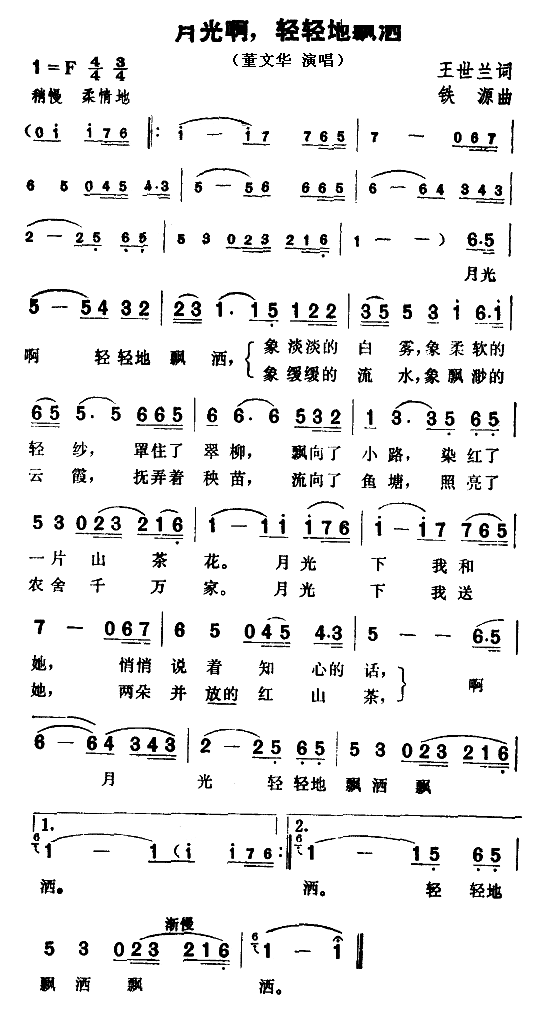 月光啊，轻轻地飘洒
（董文华 演唱）
1=F 4/4 3/4
王世兰词
稍慢 柔情地
铁 源曲
(0i i176 ‖: i — i7 765 | 7 — 067 |
6 5 045 4·3 | 5 — 56 665 | 6 — 64 343 |
2 — 25 65 | 53 023 216 | 1 — — ) 6·5 |
月光
5 — 54 32 | 23 1· 15 122 | 35 5 3 i 6·i |
啊 轻轻地飘 洒，象淡淡的 白 雾，象柔软的
象缓缓的 流 水，象飘渺的
65 5· 5 665 | 6 6· 6 532 | 1 3· 35 65 |
轻 纱， 罩住了 翠柳， 飘向了 小路， 染红了
云 霞， 抚弄着 秧苗， 流向了 鱼塘， 照亮了
53 023 216 | 1 — 1i i176 | i — i7 765 |
一片 山 茶 花。 月光 下 我和
农舍 千 万 家。 月光 下 我送
7 — 067 | 6 5 045 4·3 | 5 — — 6·5 |
她， 悄悄 说 着 知 心的 话， 啊
她， 两朵 并 放的 红 山 茶，
6 — 64 343 | 2 — 25 65 | 53 023 216 |
月 光 轻 轻地 飘洒 飘
1. 6 1 — 1(i i176 :‖ 2. 6 1 — 15 65 |
洒。 洒。 轻 轻地
渐慢
53 023 216 | 6 1 — 1 ‖
飘洒 飘 洒。